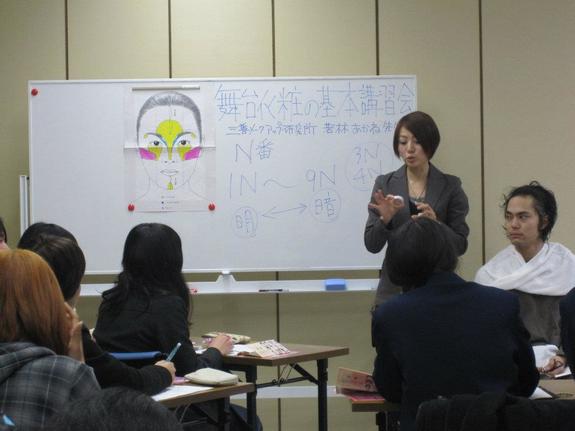 舞台化粧の基本講習会
三善メークアップ研究所 若林 あかね
N番
3N
4N
1N～9N
明 ↔ 暗